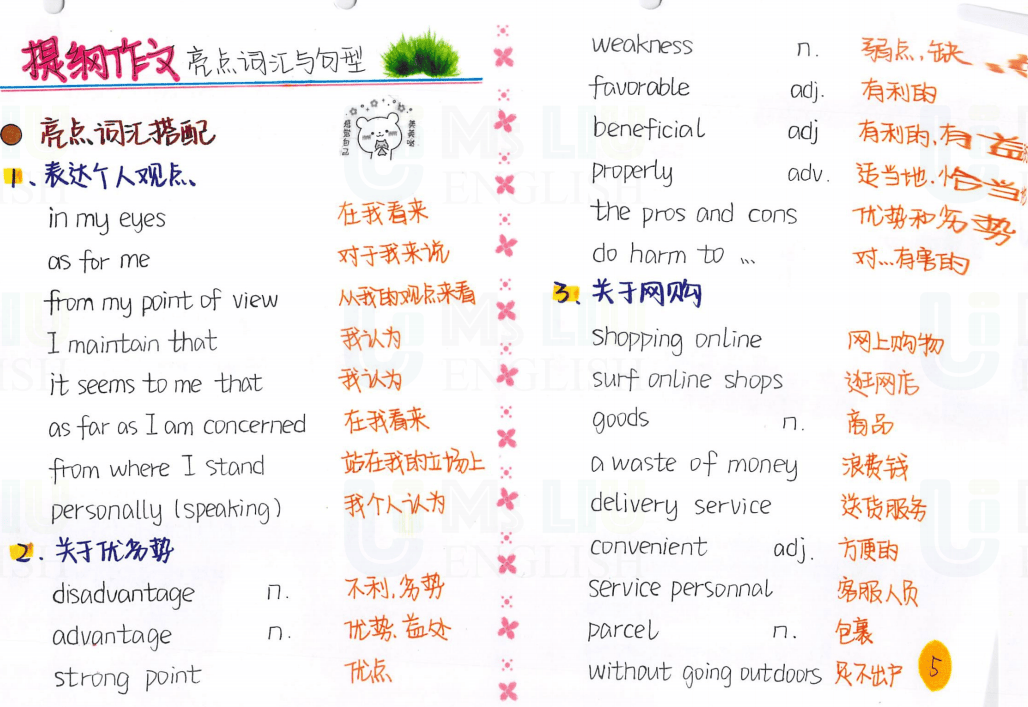 提纲作文 亮点词汇与句型
亮点词汇搭配
1、表达个人观点、
in my eyes 在我看来
as for me 对于我来说
from my point of view 从我的观点来看
I maintain that 我认为
it seems to me that 我认为
as far as I am concerned 在我看来
from where I stand 站在我的立场上
personally (speaking) 我个人认为
2、关于优劣势
disadvantage n. 不利,劣势
advantage n. 优势、益处
strong point 优点
weakness n. 弱点,缺
favorable adj. 有利的
beneficial adj 有利的,有益
properly adv. 适当地,恰当
the pros and cons 优势和劣势
do harm to ... 对...有害的
3、关于网购
shopping online 网上购物
surf online shops 逛网店
goods n. 商品
a waste of money 浪费钱
delivery service 送货服务
convenient adj. 方便的
service personnal 客服人员
parcel n. 包裹
without going outdoors 足不出户
5
MS LIU
ENGLISH